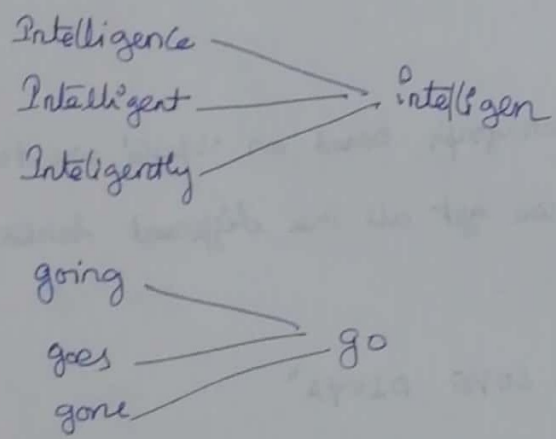 Intelligence
Intelligent
intelligen
Inteligently
going
goes
go
gone